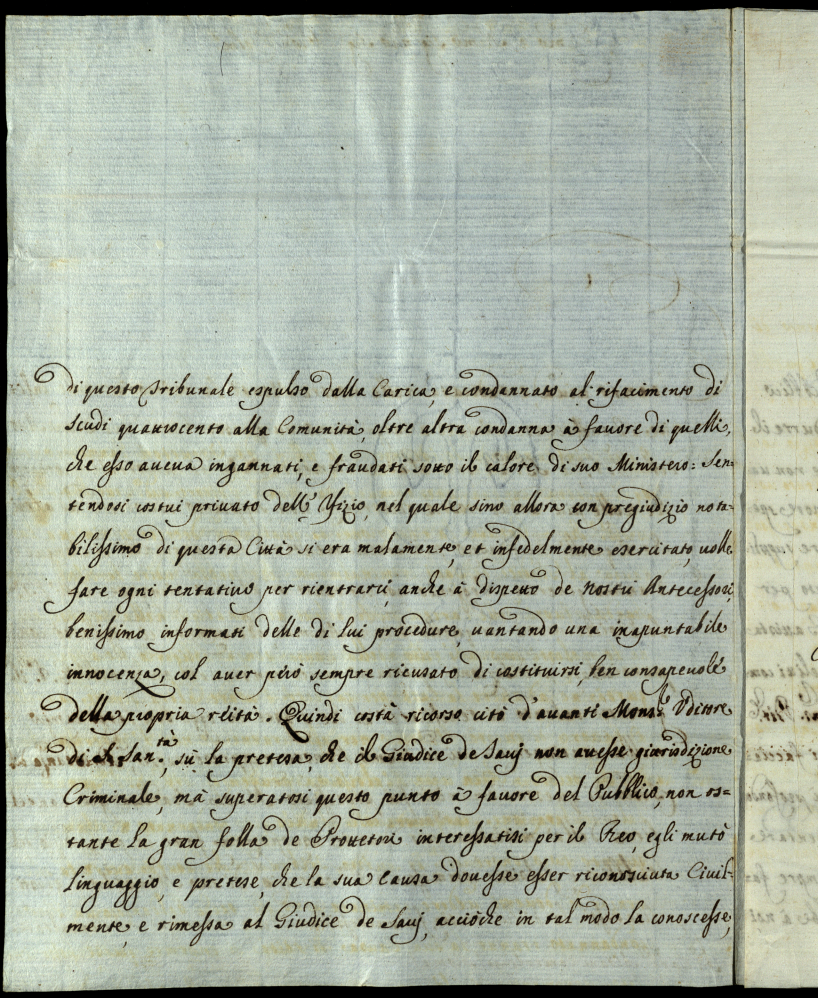 di questo Tribunale espulso dalla Carica, e condannato al rifacimento di
scudi quattrocento alla Comunità, oltre altra condanna à fauore di quelli,
che esso aueua ingannati, e fraudati sotto il calore di suo Ministero: Sen=
tendosi costui priuato dell' Ufizio, nel quale sino allora con pregiudizio nota=
bilissimo di questa Città si era malamente, et infedelmente esercitato, uolle
fare ogni tentatiuo per rientrarui, anche à dispetto de nostri Antecessori,
benissimo informati delle di lui procedure, uantando una inapuntabile
innocenza, col auer però sempre ricusato di costituirsi, ben consapeuole
della propria reità. Quindi costà ricorso citò d'auanti Mons.r Uditore
di S. San.tà, sù la pretesa, che il Giudice de Sauj non auesse giurisdizione
Criminale, mà superatosi questo punto à fauore del Pubblico, non os=
tante la gran folla de Protettori interessatisi per il Reo, egli mutò
linguaggio, e pretese, che la sua Causa douesse esser riconosciuta Ciuil=
mente, e rimessa al Giudice de Sauj, acciòche in tal modo la conoscesse,